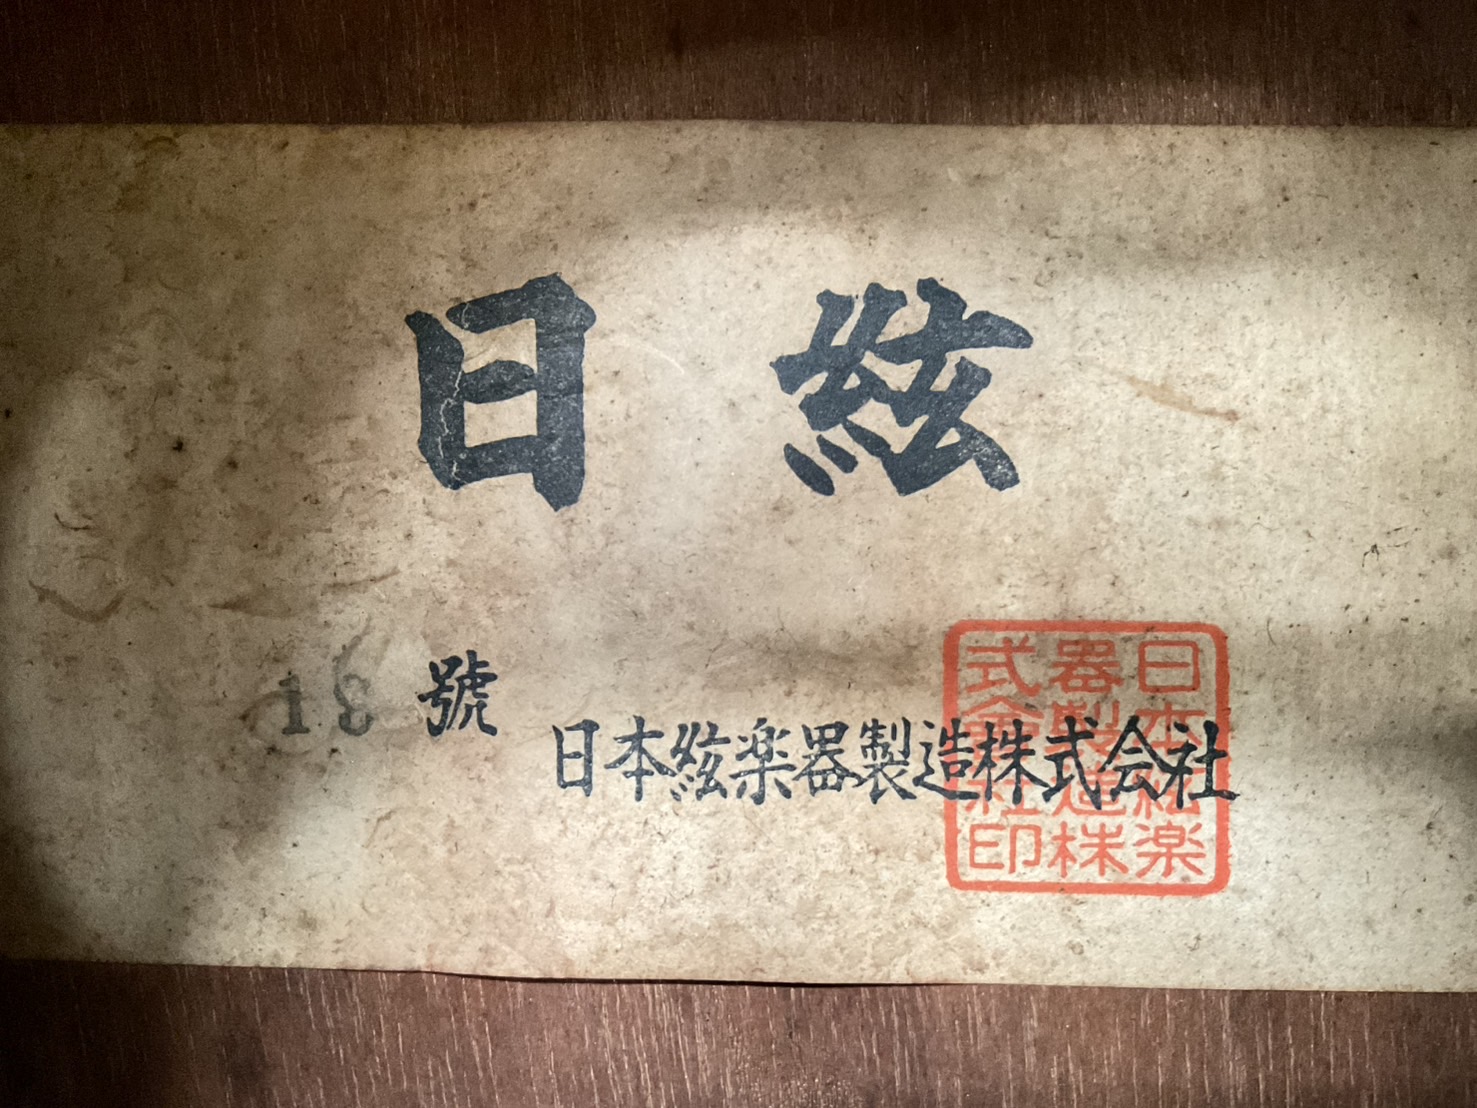 日絃
13號
日本絃楽器製造株式会社
日本絃楽
器製造株
式会社印